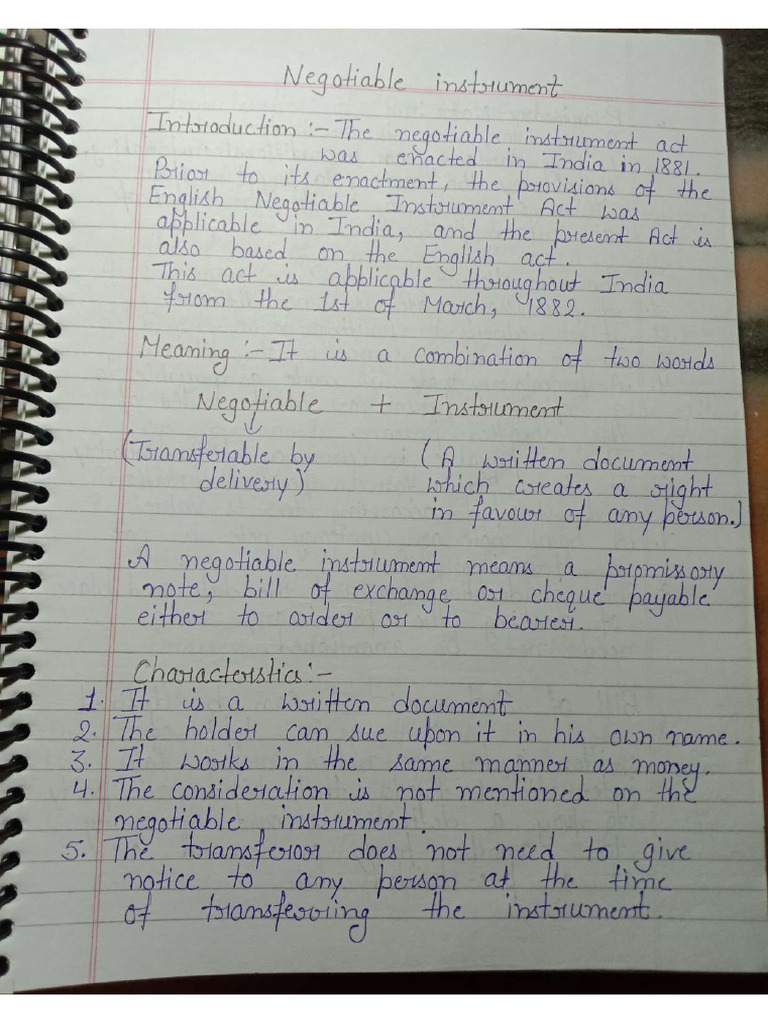 Negotiable instrument
Introduction :- The negotiable instrument act
was enacted in India in 1881.
Prior to its enactment, the provisions of the
English Negotiable Instrument Act was
applicable in India, and the present Act is
also based on the English act.
This act is applicable throughout India
from the 1st of March, 1882.
Meaning :- It is a combination of two words
Negotiable + Instrument
(Transferable by (A written document
delivery) which creates a right
in favour of any person.)
A negotiable instrument means a promissory
note, bill of exchange or cheque payable
either to order or to bearer.
Characterstics :-
1. It is a written document
2. The holder can sue upon it in his own name.
3. It works in the same manner as money.
4. The consideration is not mentioned on the
negotiable instrument.
5. The transferor does not need to give
notice to any person at the time
of transferring the instrument.